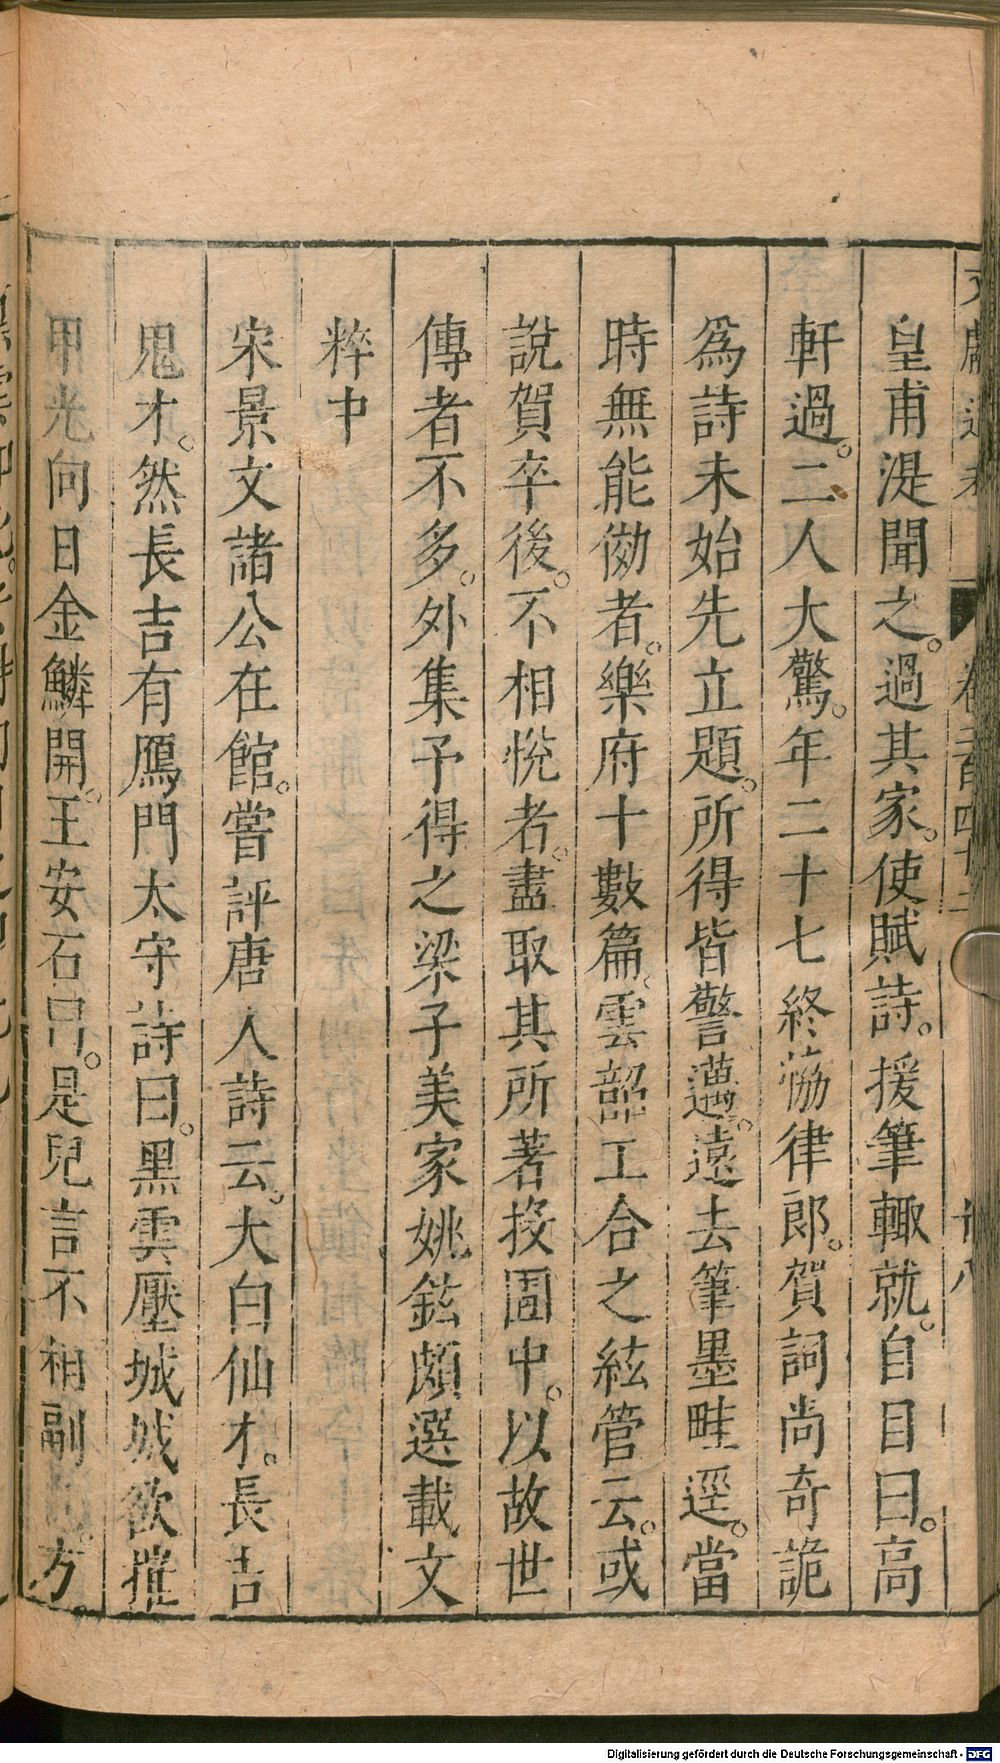 皇甫湜聞之。過其家。使賦詩。援筆輙就。自目曰。高
軒過。二人大驚。年二十七終協律郎。賀詞尚奇詭
爲詩未始先立題。所得皆警邁。遠去筆墨畦逕。當
時無能効者。樂府十數篇。雲韶工合之絃管云。或
說賀卒後。不相悅者。盡取其所著投圊中。以故世
傳者不多。外集予得之梁子美家姚鉉頗選載文
粹中
宋景文諸公在館。嘗評唐人詩云。太白仙才。長吉
鬼才。然長吉有鴈門太守詩曰。黑雲壓城城欲摧
甲光向日金鱗開。王安石曰。是兒言不相副。方
Digitalisierung gefördert durch die Deutsche Forschungsgemeinschaft - DFG